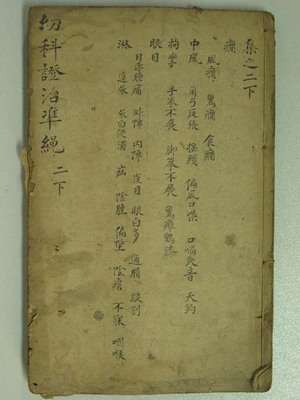 幼科證治準繩 二下
集之二下
癇
風癇 驚癇 食癇
中風 角弓反張 搐搦 偏風口噤 口噤失音 天釣
拘攣 手拳不展 脚拳不展 鶴膝
眼目
目赤腫痛 外障 內障 雀目 眼白多 通睛
淋
遺尿 尿白便濁 疝 陰腫 偏墜 陰瘡 不寐 咽喉